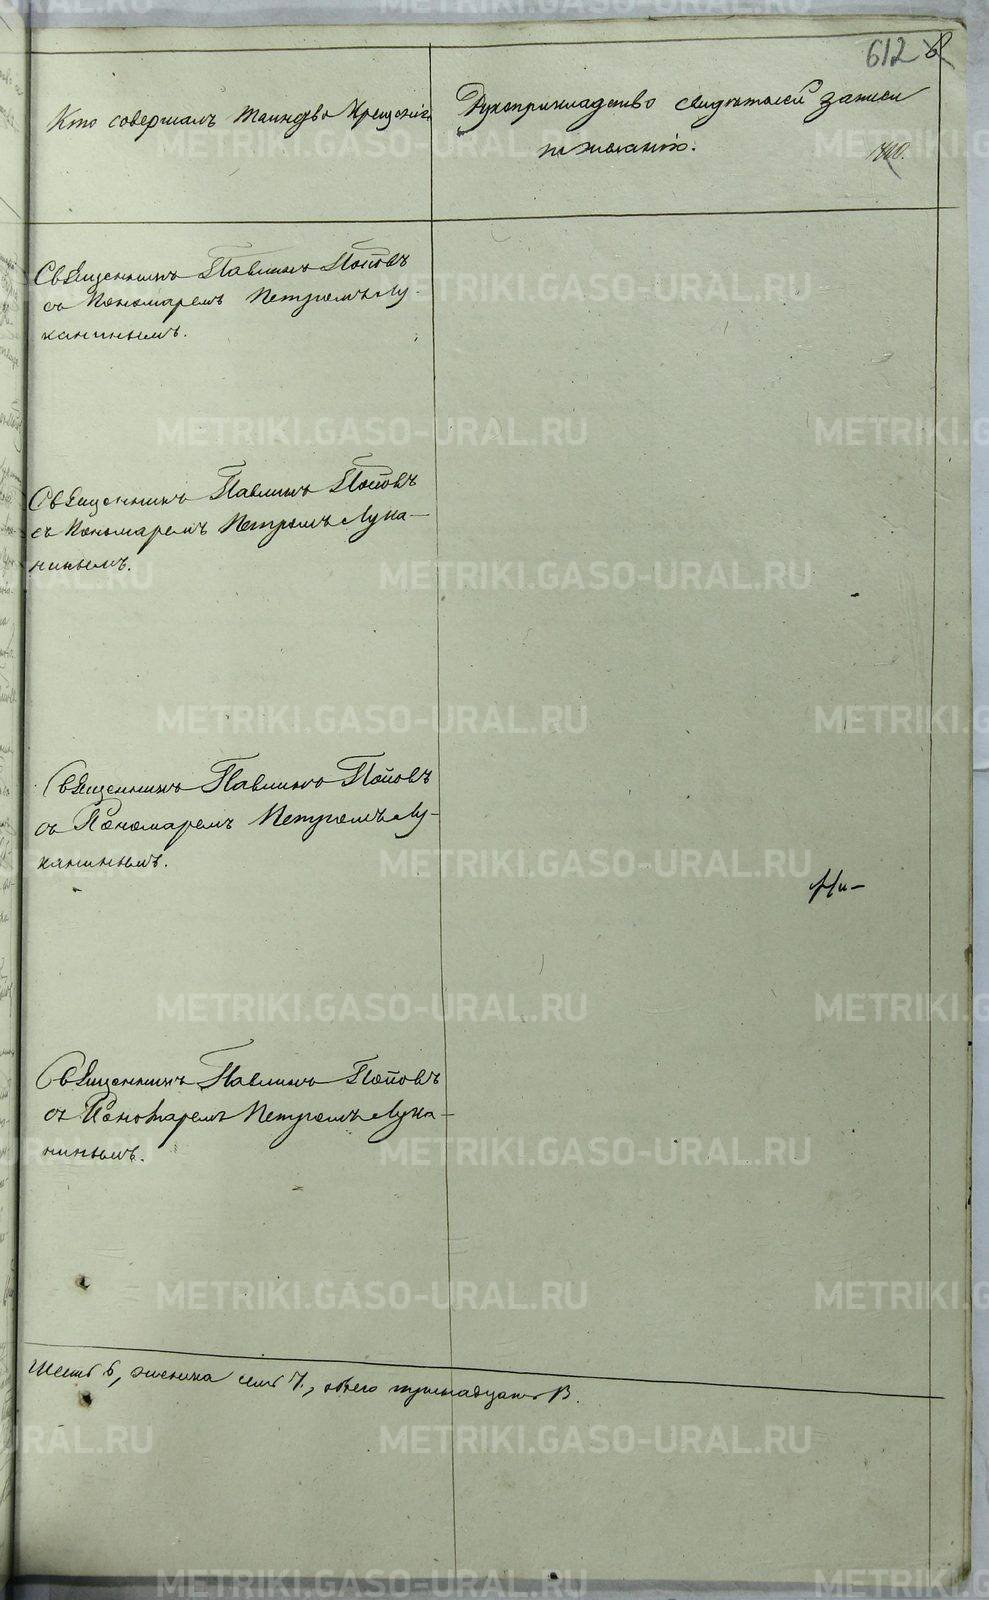 612
Кто совершалъ таинство крещенія.
Рукоприкладство свидѣтелей записи
по желанію.
Священникъ Павлинъ Поповъ
съ Пономаремъ Петромъ Лу-
канинымъ.
Священникъ Павлинъ Поповъ
съ Пономаремъ Петромъ Лука-
нинымъ.
Священникъ Павлинъ Поповъ
съ Пономаремъ Петромъ Лу-
канинымъ.
Священникъ Павлинъ Поповъ
съ Пономаремъ Петромъ Лука-
нинымъ.
шесть 6, женска семь 7, обѣего тринадцать 13.
METRIKI.GASO-URAL.RU